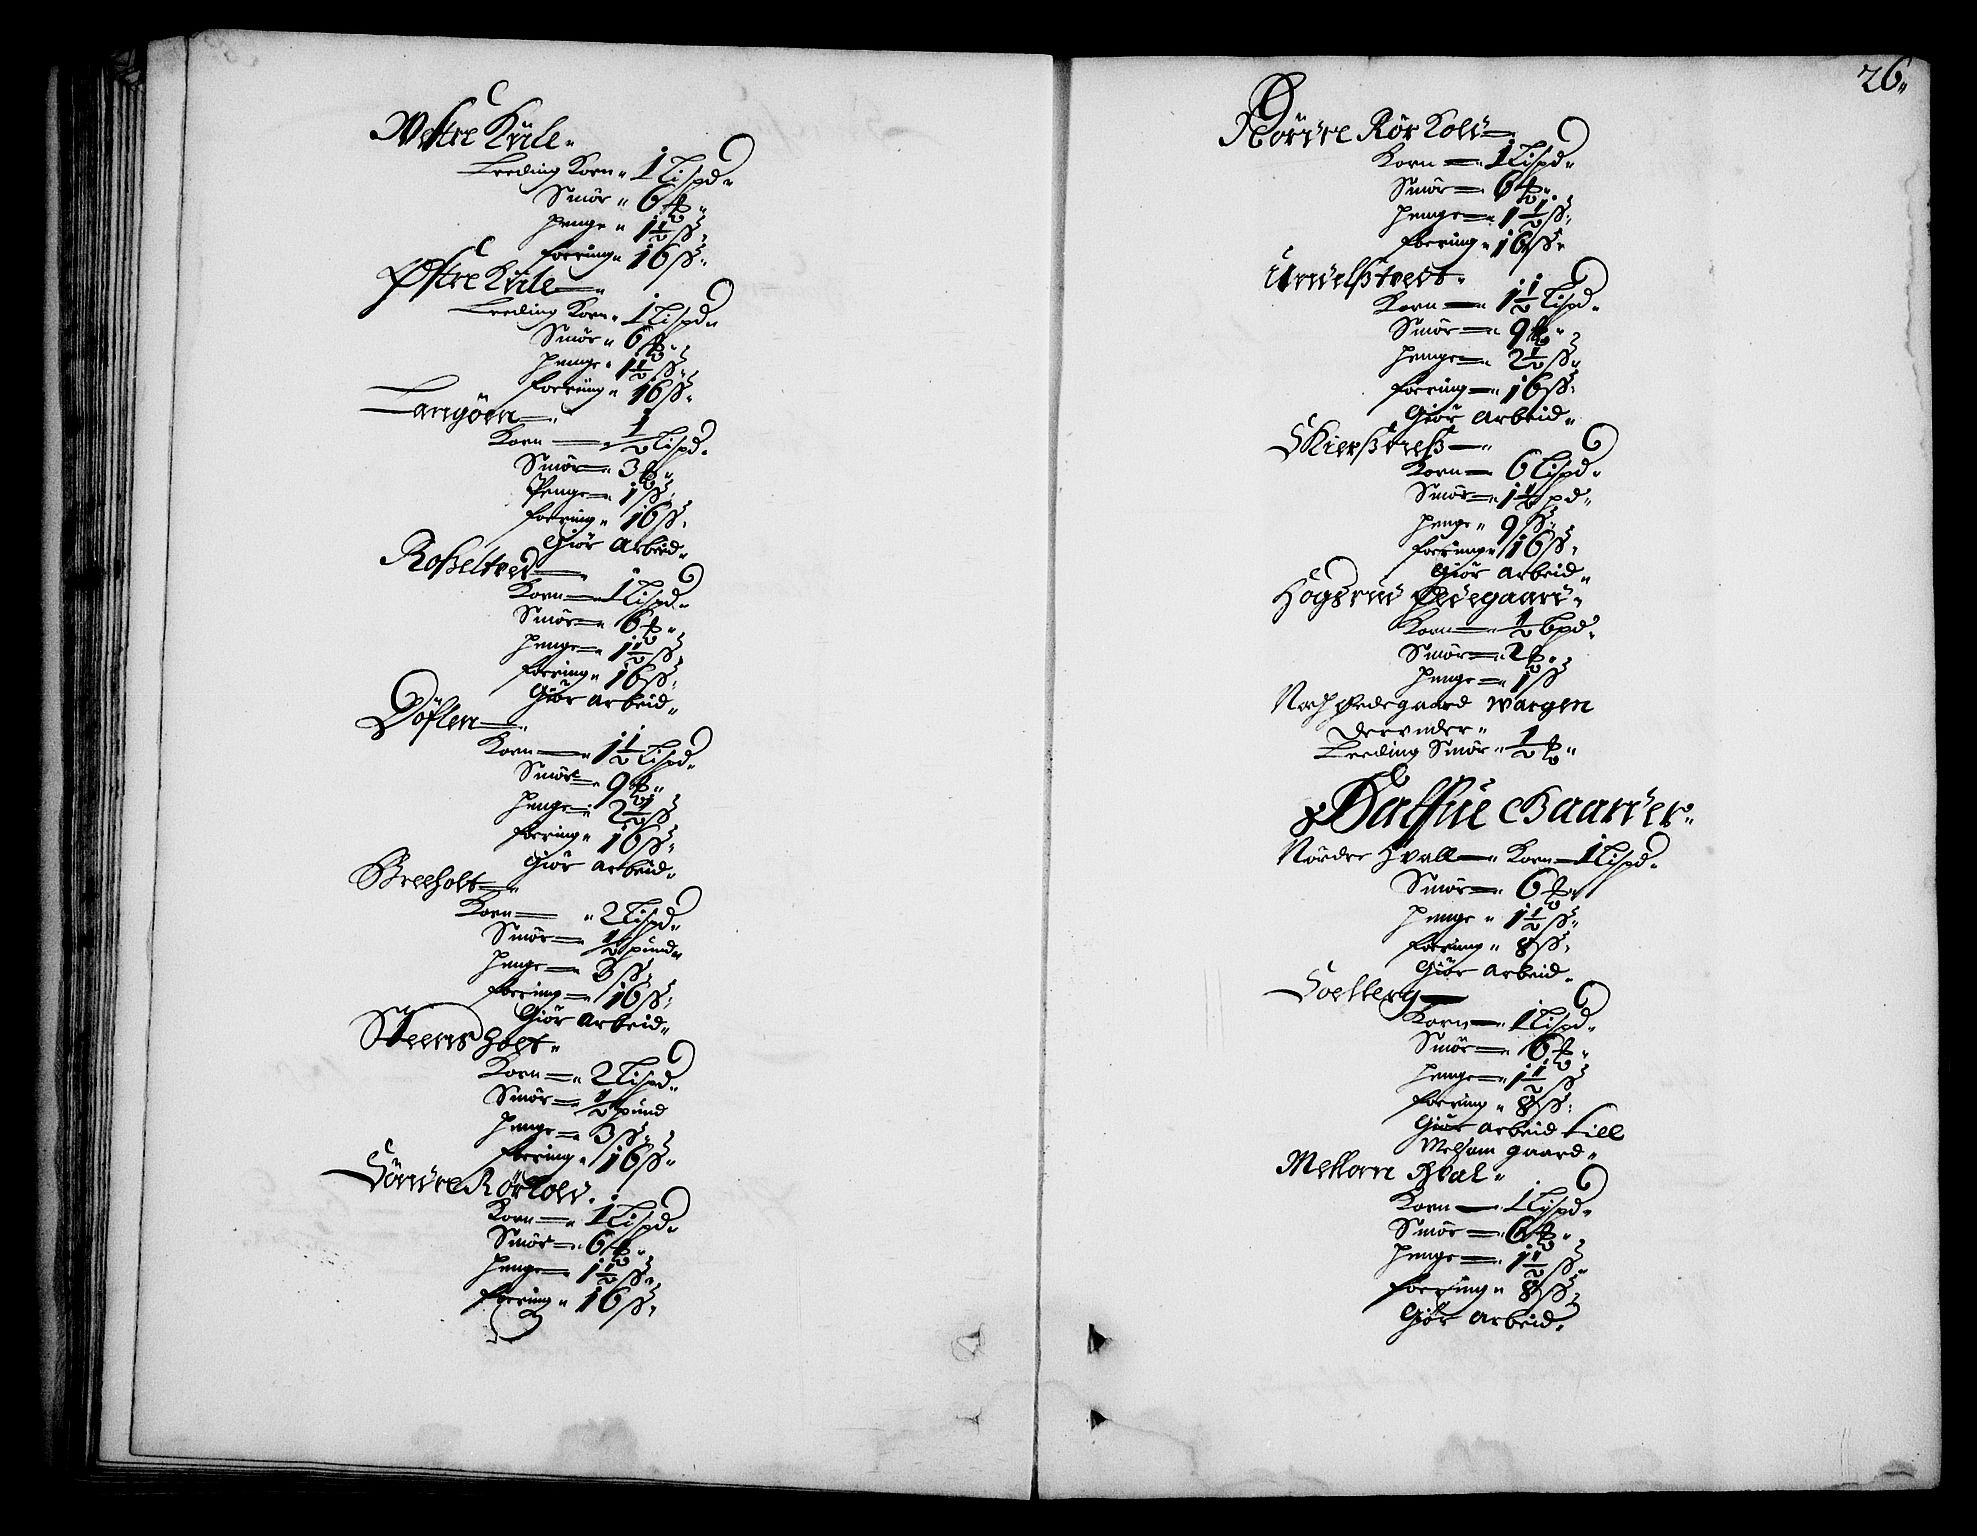 Westre Kiile
Leeding Korn 1 Lispd
Smör 6 ℔
penge 1½ ß
foering 16 ß
Østre Kiile
Leeding Korn 1 Lispd
Smör 6 ℔
penge 1½ ß
foering 16 ß
Langöen
Korn ½ Lispd
Smör 3 ℔
Penge 1 ß
foering 16 ß
Giör Arbeid
Roßeltved
Korn 1 Lispd
Smör 6 ℔
penge 1½ ß
foering 16 ß
Giör Arbeid
Döflen
Korn 1½ Lispd
Smör 9 ℔
penge 2½ ß
foering 16 ß
Giör Arbeid
Breeholt
Korn 2 Lispd
Smör ½ pund
penge 3 ß
foering 16 ß
Giör Arbeid
Steens holt
Korn 2 Lispd
Smör ½ pund
penge 3 ß
foering 16 ß
Söndre Rörkold
Korn 1 Lispd
Smör 6 ℔
penge 1½ ß
foering 16 ß
26
Nordre Rör Kold
Korn 1 Lispd
Smör 6 ℔
penge 1½ ß
foering 16 ß
Undelßtvedt
Korn 1½ Lispd
Smör 9 ℔
penge 2½ ß
foering 16 ß
Giör Arbeid
Skierßneß
Korn 6 Lispd
Smör 1½ pd
penge 9 ß
foering 16 ß
Giör Arbeid
Högsrud Ødegaard
Korn ½ Lpd
Smör 2 ℔
penge 1 ß
Noch Ødegaard Wargen
derunder
Leeding Smör ½ ℔
Halffue Gaarder
Nördre Hvall Korn 1 Lispd
Smör 6 ℔
penge 1½ ß
foering 8 ß
Giör Arbeid
Soelberg
Korn 1 Lispd
Smör 6 ℔
penge 1½ ß
foering 8 ß
Giör Arbeid till
Melsom gaard
Mellom Hval
Korn 1 Lispd
Smör 6 ℔
penge 1½ ß
foering 8 ß
Giör Arbeid